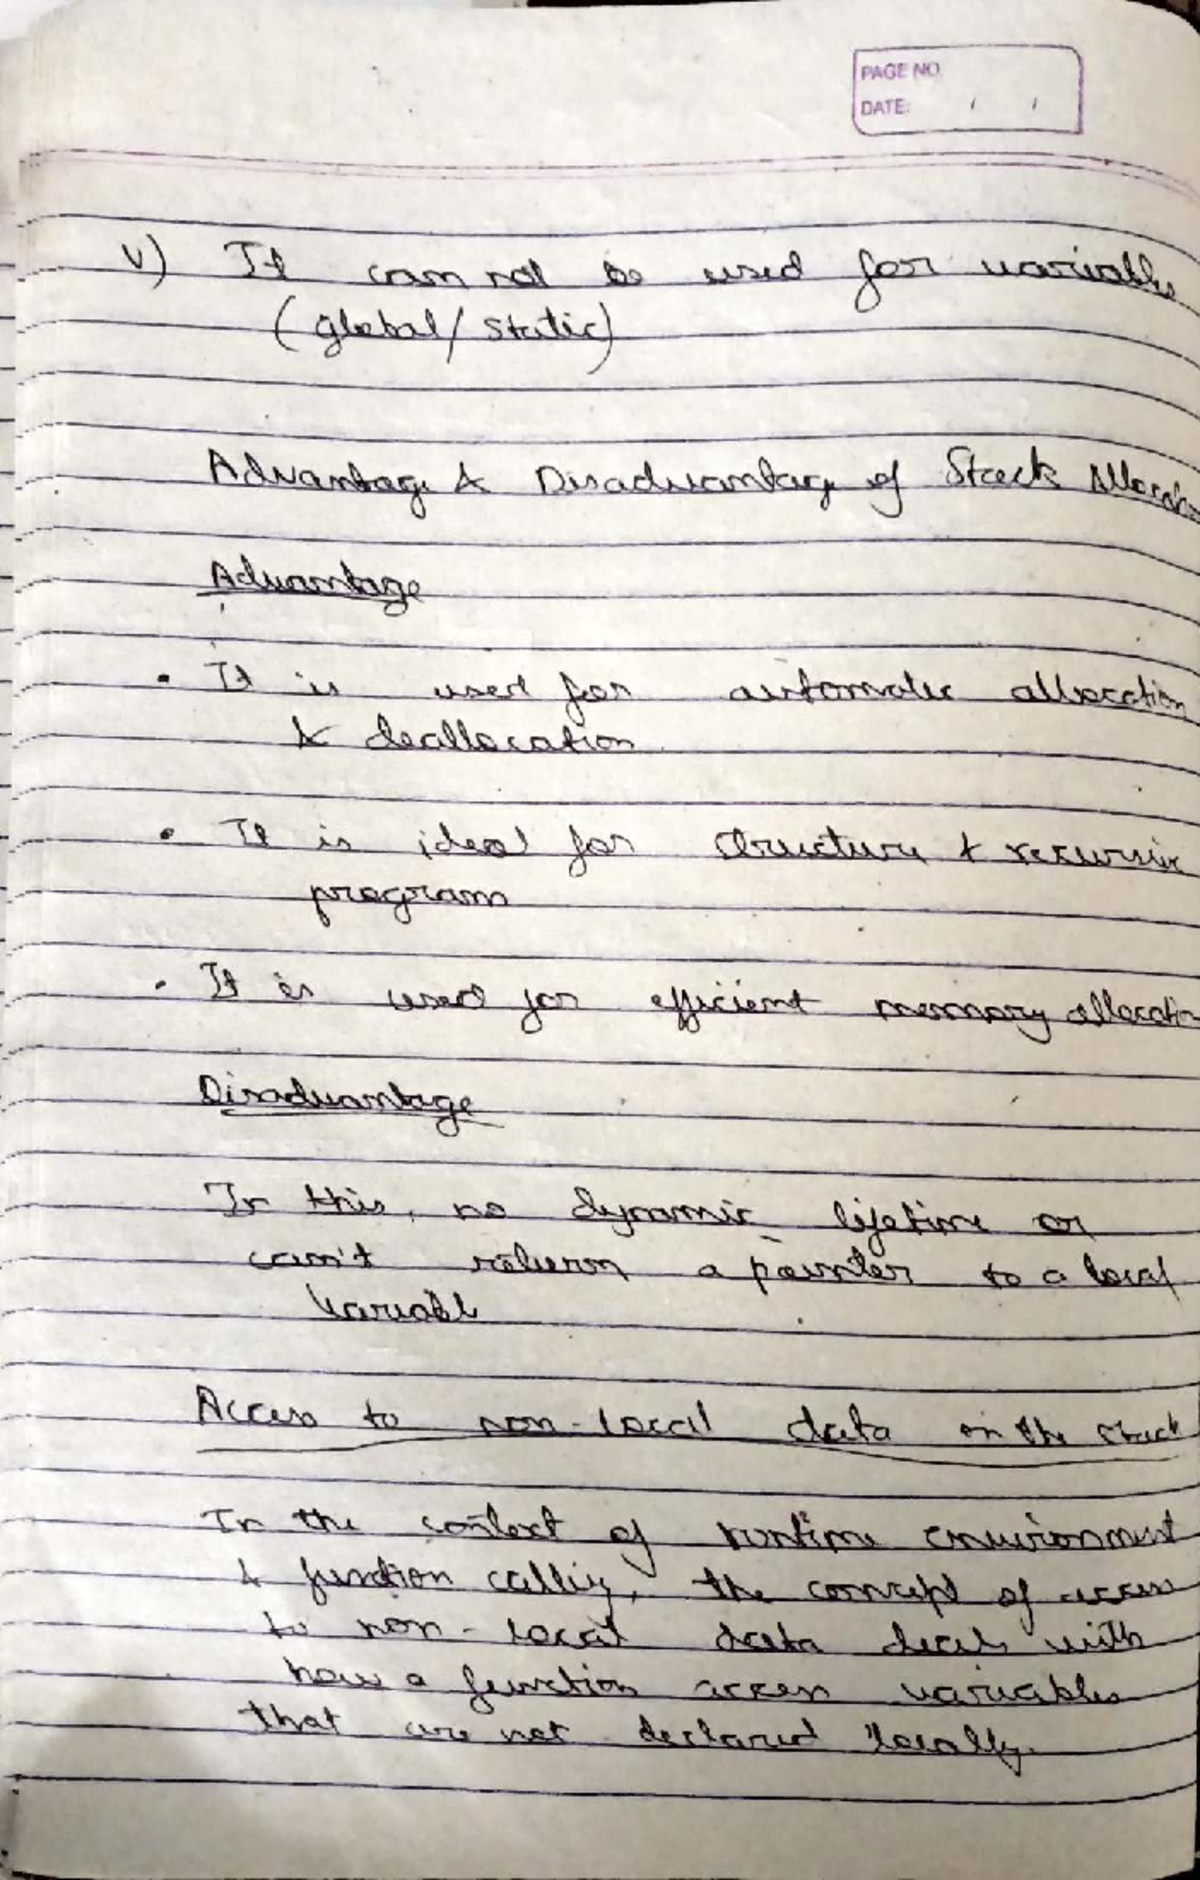 PAGE NO.
DATE: / /
v) It can not be used for variables
(global/static)
Advantage & Disadvantage of Stack Allocation
Advantage
• It is used for automatic allocation
& deallocation
• It is ideal for structure & recursive
program
• It is used for efficient memory allocation
Disadvantage
In this, no dynamic lifetime or
can't return a pointer to a local
variable
Access to non-local data on the stack
In the context of runtime environment
& function calling, the concept of access
to non-local data deals with
how a function access variables
that are not declared locally.